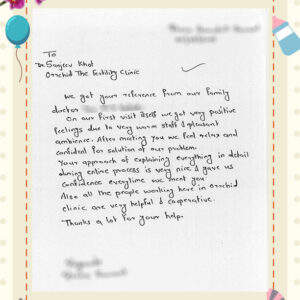 To
Dr. Sanjeev Khot
Orrchid The Fertility Clinic
We got your reference from our family
doctor
On our first visit itself we got very positive
feelings due to very warm staff & pleasant
ambience. After meeting you we feel relax and
confident for solution of our problem.
Your approach of explaining everything in detail
during entire process is very nice & gave us
confidence everytime we meet you
Also all the people working here in orrchid
clinic are very helpful & cooperative.
Thanks a lot for your help.